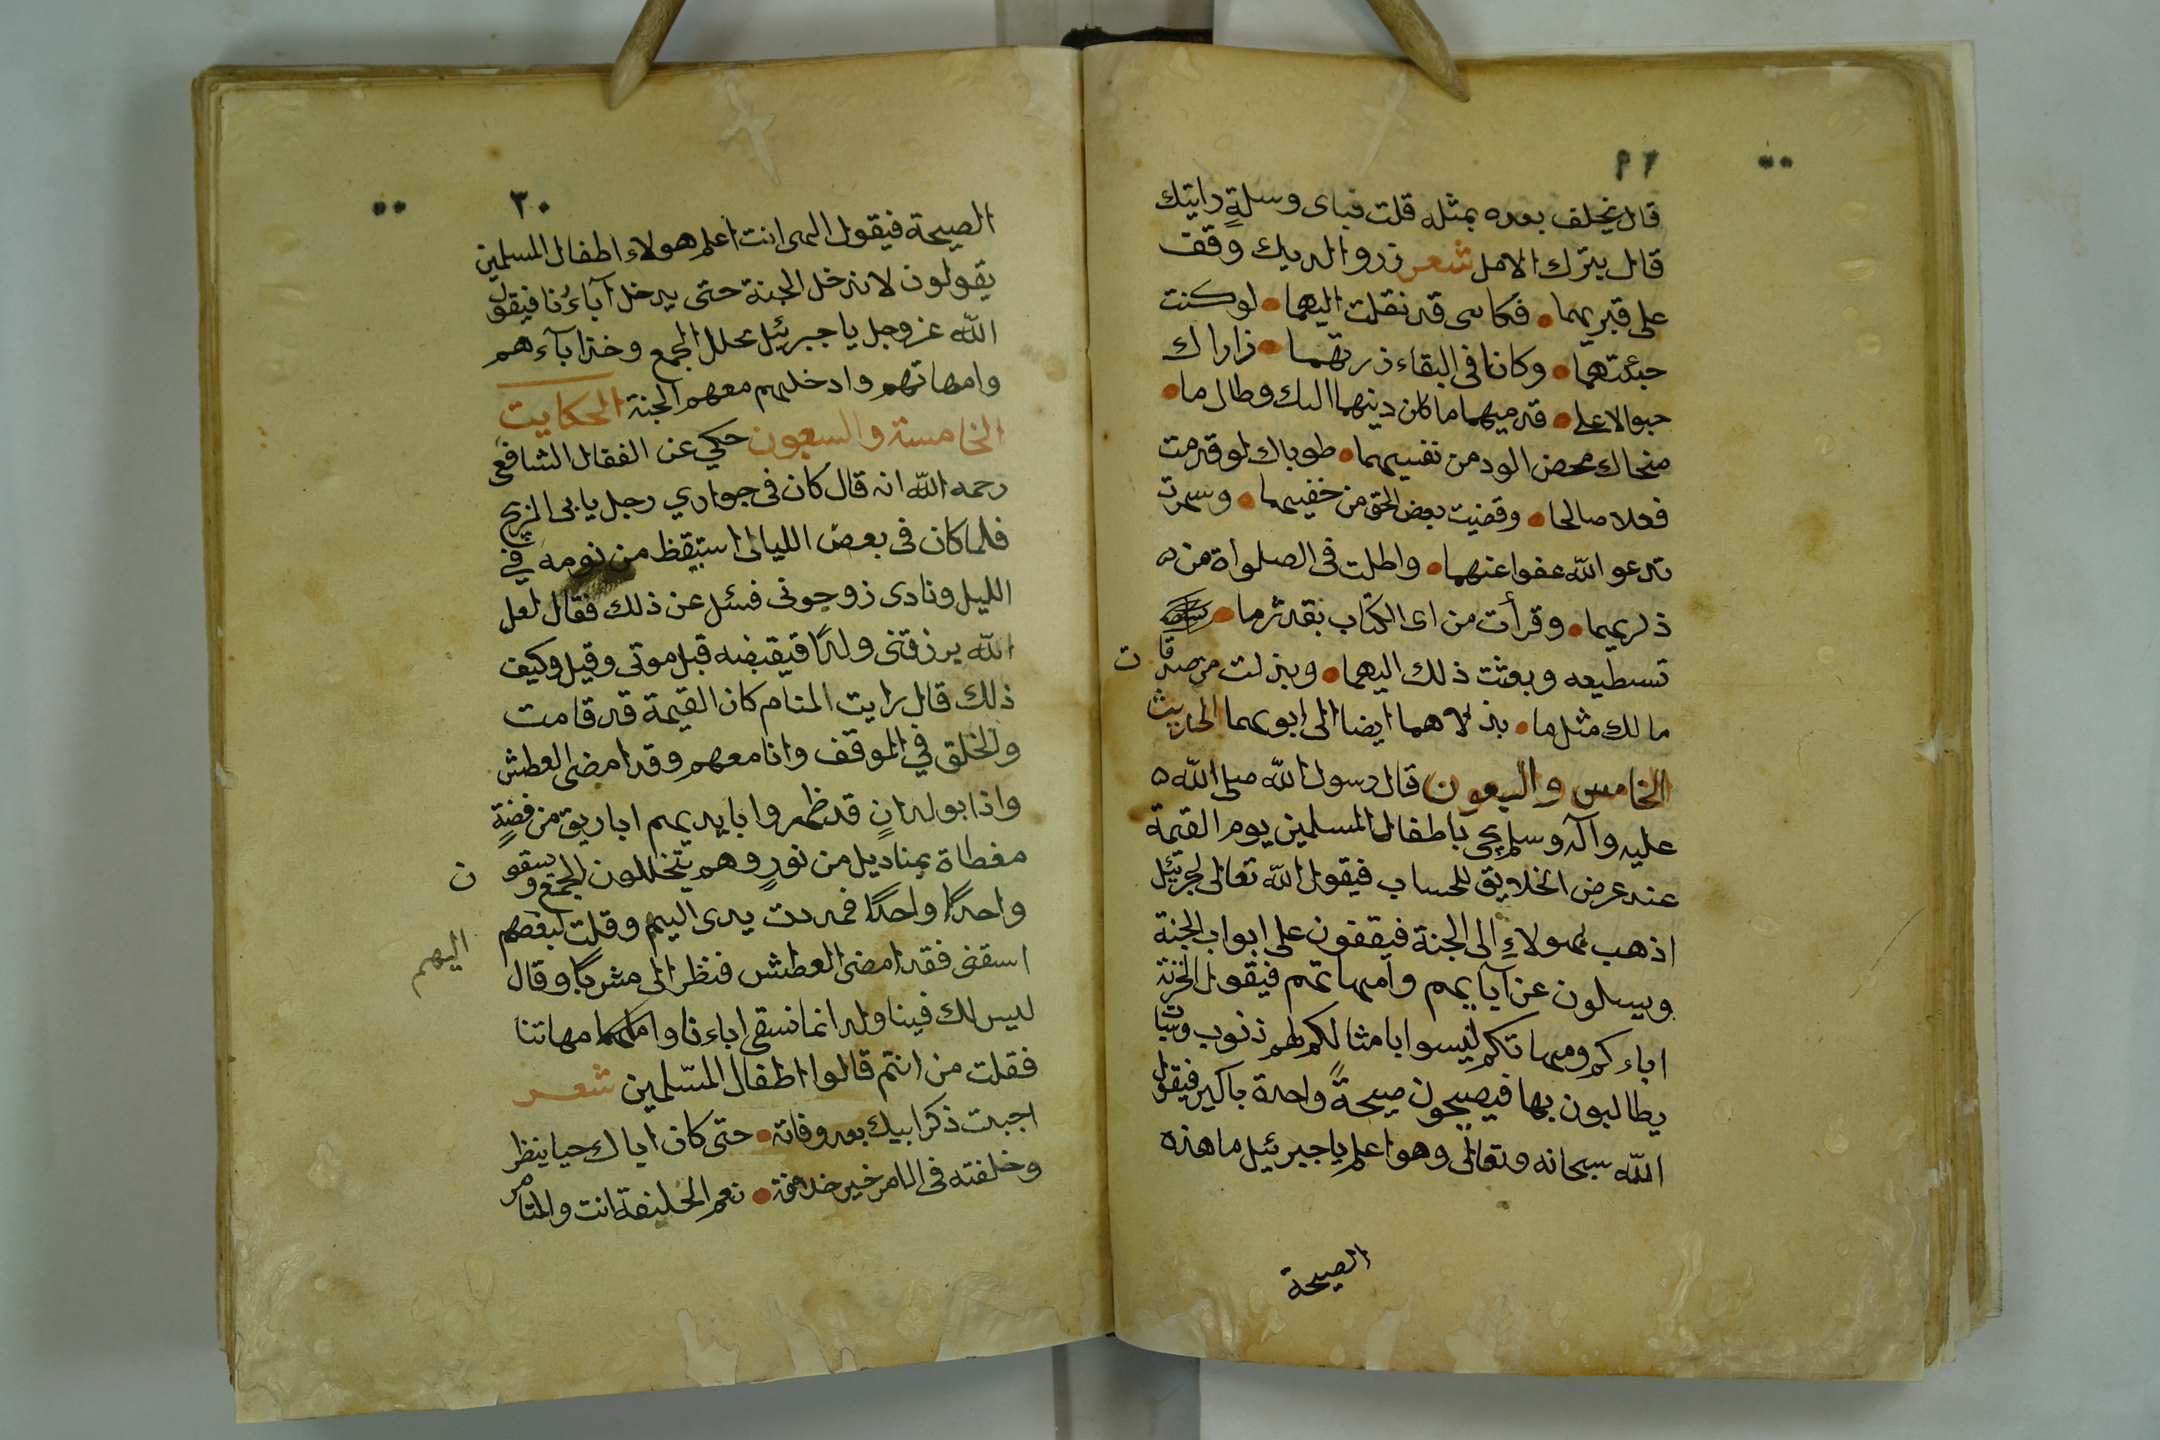 ٩٢
قال يخلف بعده بمثله قلت فباى وسلةٍ رايتك
قال بترك الامل شعر زر والديك وقف
على قبريهما فكانى قد نقلت اليهما لو كنت
حيثهما وكانا فى البقاء ذرتهما زاراك
حبوا لا على قدميهما ما كان دينهما اليك وطال ما
منحاك محض الود من نفسيهما طوباك لو قدمت
فعلا صالحا وقضيت بعض الحق من خفيهما وسمرت
تدعو الله عفوا عنهما واطلت فى الصلواة من
ذلريهما وقرأت من اى الكتاب بقدر ما
تسطيعه وبعثت ذلك اليهما وبذلت من صدقات
مالك مثل ما بذلا هما ايضا الى ابويهما الحديث
الخامس والسبعون قال رسول الله صلى الله
عليه وآله وسلم يجى باطفال المسلمين يوم القيمة
عند عرض الخلايق للحساب فيقول الله تعالى لجبرئيل
اذهب بهولاءِ الى الجنة فيقفون على ابواب الجنة
ويسلون عن آبايهم وامهاتهم فيقول الخزنة
اباءكم ومهاتكم ليسوا بامثالكم لهم ذنوب
يطالبون بها فيصيحون صيحةً واحدة باكين فيقول
الله سبحانه وتعالى وهو اعلم يا جبرئيل ما هذه
الصيحة
٣٠
الصيحة فيقول الهى انت اعلم هولاء اطفال المسلمين
يقولون لا ندخل الجنة حتى يدخل آباءُنا فيقول
الله عز وجل يا جبرئيل تخلل الجمع وخذ اباءهم
وامهاتهم وادخلهم معهم الجنة الحكايت
الخامسة والسبعون حكي عن القفال الشافعى
رحمه الله انه قال كان فى جواري رجل يابى التزويج
فلما كان فى بعض الليالى استيقظ من نومه في
الليل ونادى زوجونى فسئل عن ذلك فقال لعل
الله يرزقنى ولدًا فيقبضه قبل موتى وقيل وكيف
ذلك قال رايت المنام كان القيمة قد قامت
والخلق في الموقف وانا معهم وقد امضى العطش
واذا بولدانٍ قد ظهروا بايديهم اباريق من فضةٍ
مغطاة بمناديل من نورٍ وهم يتخللون الجمع ويسقون
واحدًا واحدًا فمددت يدى اليهم وقلت لبعضهم
اليهم
اسقنى فقد امضى العطش فنظر الى مشركًا وقال
ليس لك فينا ولد انما نسقى اباءنا وامهاتنا
فقلت من انتم قالوا اطفال المسلمين شعر
احييت ذكر ابيك بعد وفاته حتى كان اياك حيا ينظر
وخلفته فى الامر خير خلافة نعم الخليفة انت والمتامر